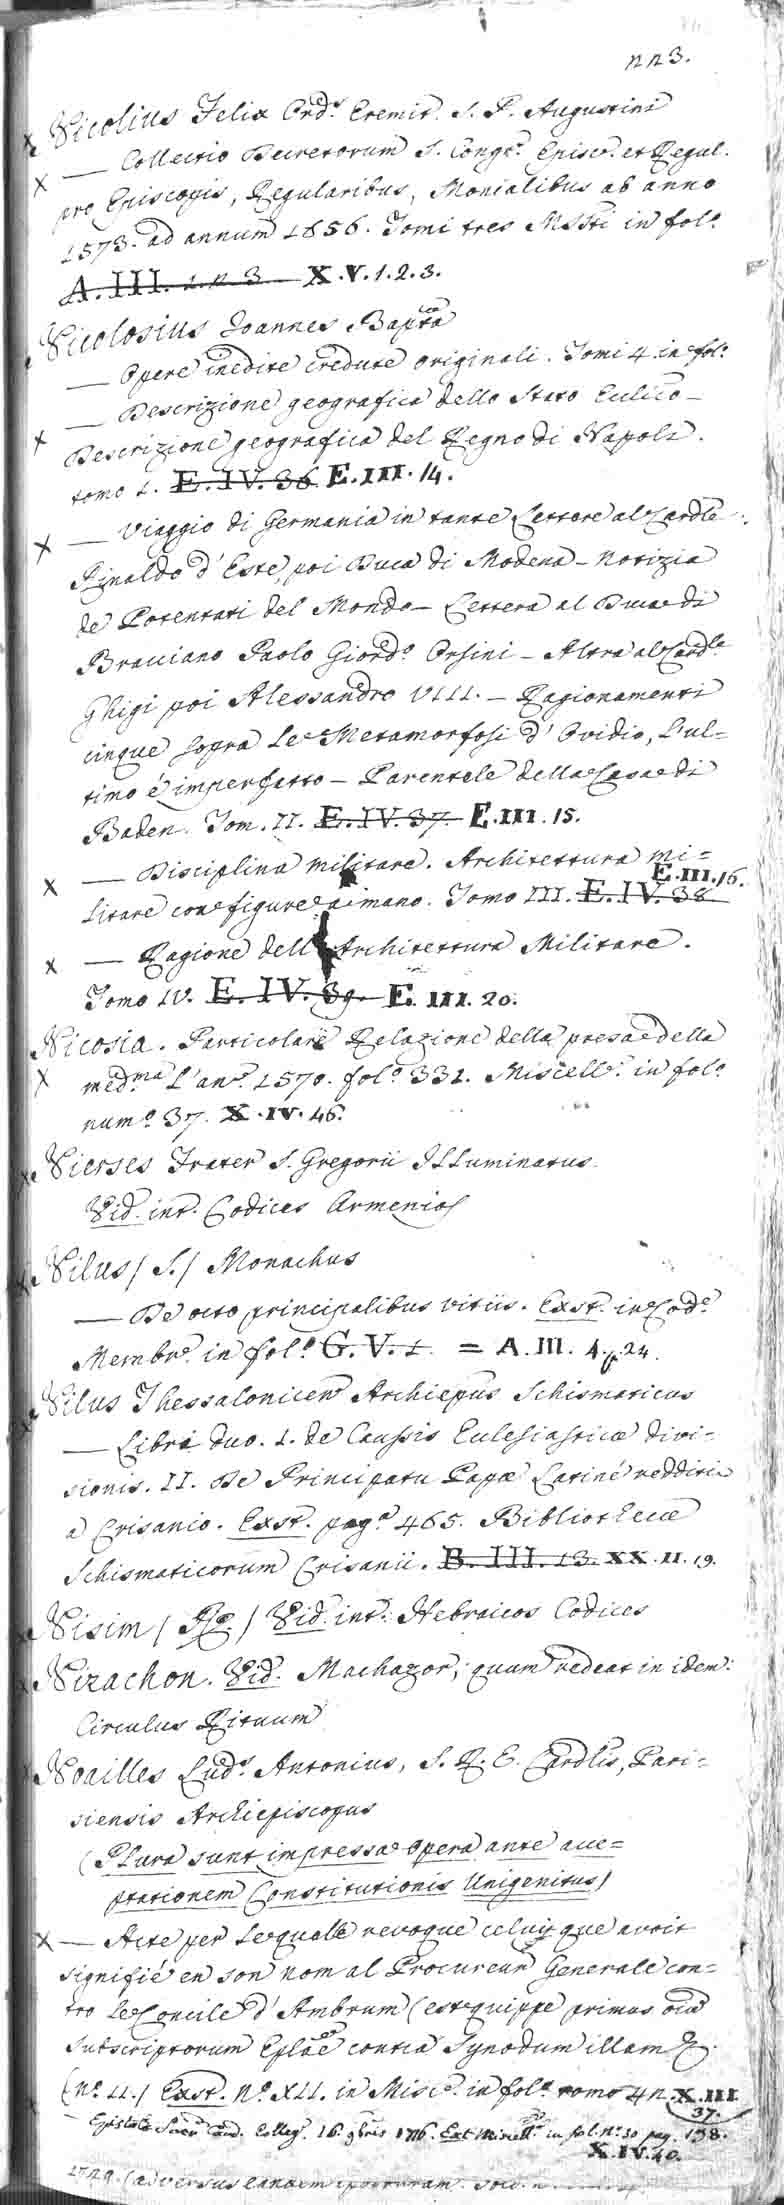 nn3.
Nicolius Felix Ord.s Eremit. S. P. Augustini
— Collectio Decretorum S. Congr. Episco. et Regul.
pro Episcopis, Regularibus, Monialibus ab anno
1573. ad annum 1656. Tomi tres MSSti in fol.o
A. III. 1. n 3 X.V.1.2.3.
Nicolosius Joannes Bapta
— Opere inedite credute originali. Tomi 4 in fol.o
— Descrizione geografica dello Stato Eccl.co —
Descrizione geografica del Regno di Napoli.
tomo 1. E.IV.36 E.III.14.
— Viaggio di Germania in tante Lettere al Cardle
Rinaldo d'Este, poi Duca di Modena — Notizia
de Potentati del Mondo — Lettera al Duca di
Bracciano Paolo Giord.o Orsini — Altra al Cardle
Ghigi poi Alessandro VIII. — Ragionamenti
cinque sopra le Metamorfosi d'Ovidio, l'ul=
timo é imperfatto — Parentele della Casa di
Baden. Tom. II. E.IV.37. E.III.15.
— Disciplina militare. Architettura mi=
litare con figure a mano. Tomo III. E.IV.38 E.III.16.
— Ragione dell'Architettura Militare.
Tomo IV. E.IV.39. E.III.20.
Nicosia. Particolare Relazione della presa della
med.ma l'an.o 1570. fol.o 331. Miscell. in fol.o
num.o 37. X.IV.46.
Nierses Frater S. Gregorii Illuminatus
Vid. int. Codices Armenios
Nilus / S. / Monachus
— De octo principalibus vitiis. Exst. in Cod.e
Membr. in fol.o G.V.1. = A.III.4.p.24.
Nilus Thessalonicen Archiepus Schismaticus
— Libri duo. I. de Caussis Eclesiasticæ divi=
sionis. II. De Principatu Papæ Latiné redditi
a Crisanio. Exst. pag.a 465. Bibliothecæ
Schismaticorum Crisanii. B.III.13. XX.II.19.
Nisim / / Vid. int. Hebraicos Codices
Nizachon. Vid. Machazor, quum redeat in idem:
Circulus Rituum
Noailles Lud.s Antonius, S. R. E. Cardlis, Pari=
siensis Archiepiscopus
(Plura sunt impressa opera ante acce=
ptationem Constitutionis Unigenitus)
— Acte per le quale revoque celuy que avoit
signifié en son nom al Procureur Generale con=
tro le Concile d'Ambrum (est quippe primus
subscriptorum contra Synodum illam &.
(n.o 11.) Exst. N.o XII. in Misc. in fol.o tomo 4 n. X.III
37.
— Epistola Coll. 16. 9bris 1716. Ext Miscell. in fol. n.o 30 pag. 138.
X.IV.40.